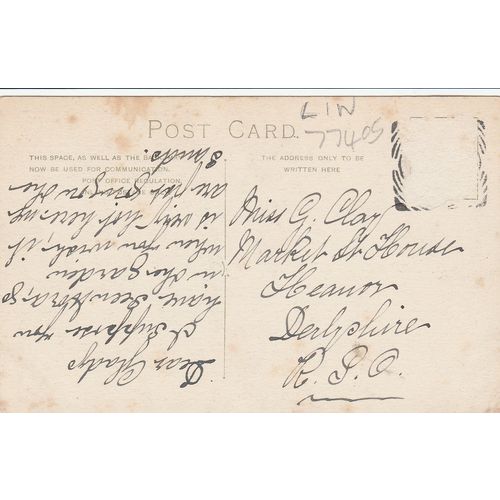 LIN
77405
POST CARD.
THIS SPACE, AS WELL AS THE BA
NOW BE USED FOR COMMUNICATION.
POST OFFICE REGULATION.
THE ADDRESS ONLY TO BE
WRITTEN HERE
Dear Gladys
I suppose you
have been
in the garden
when you wish, it
is very hot here we
are just going on the
Sands.
Miss G. Clay
Market St House
Heanor
Derbyshire
R. S. O.